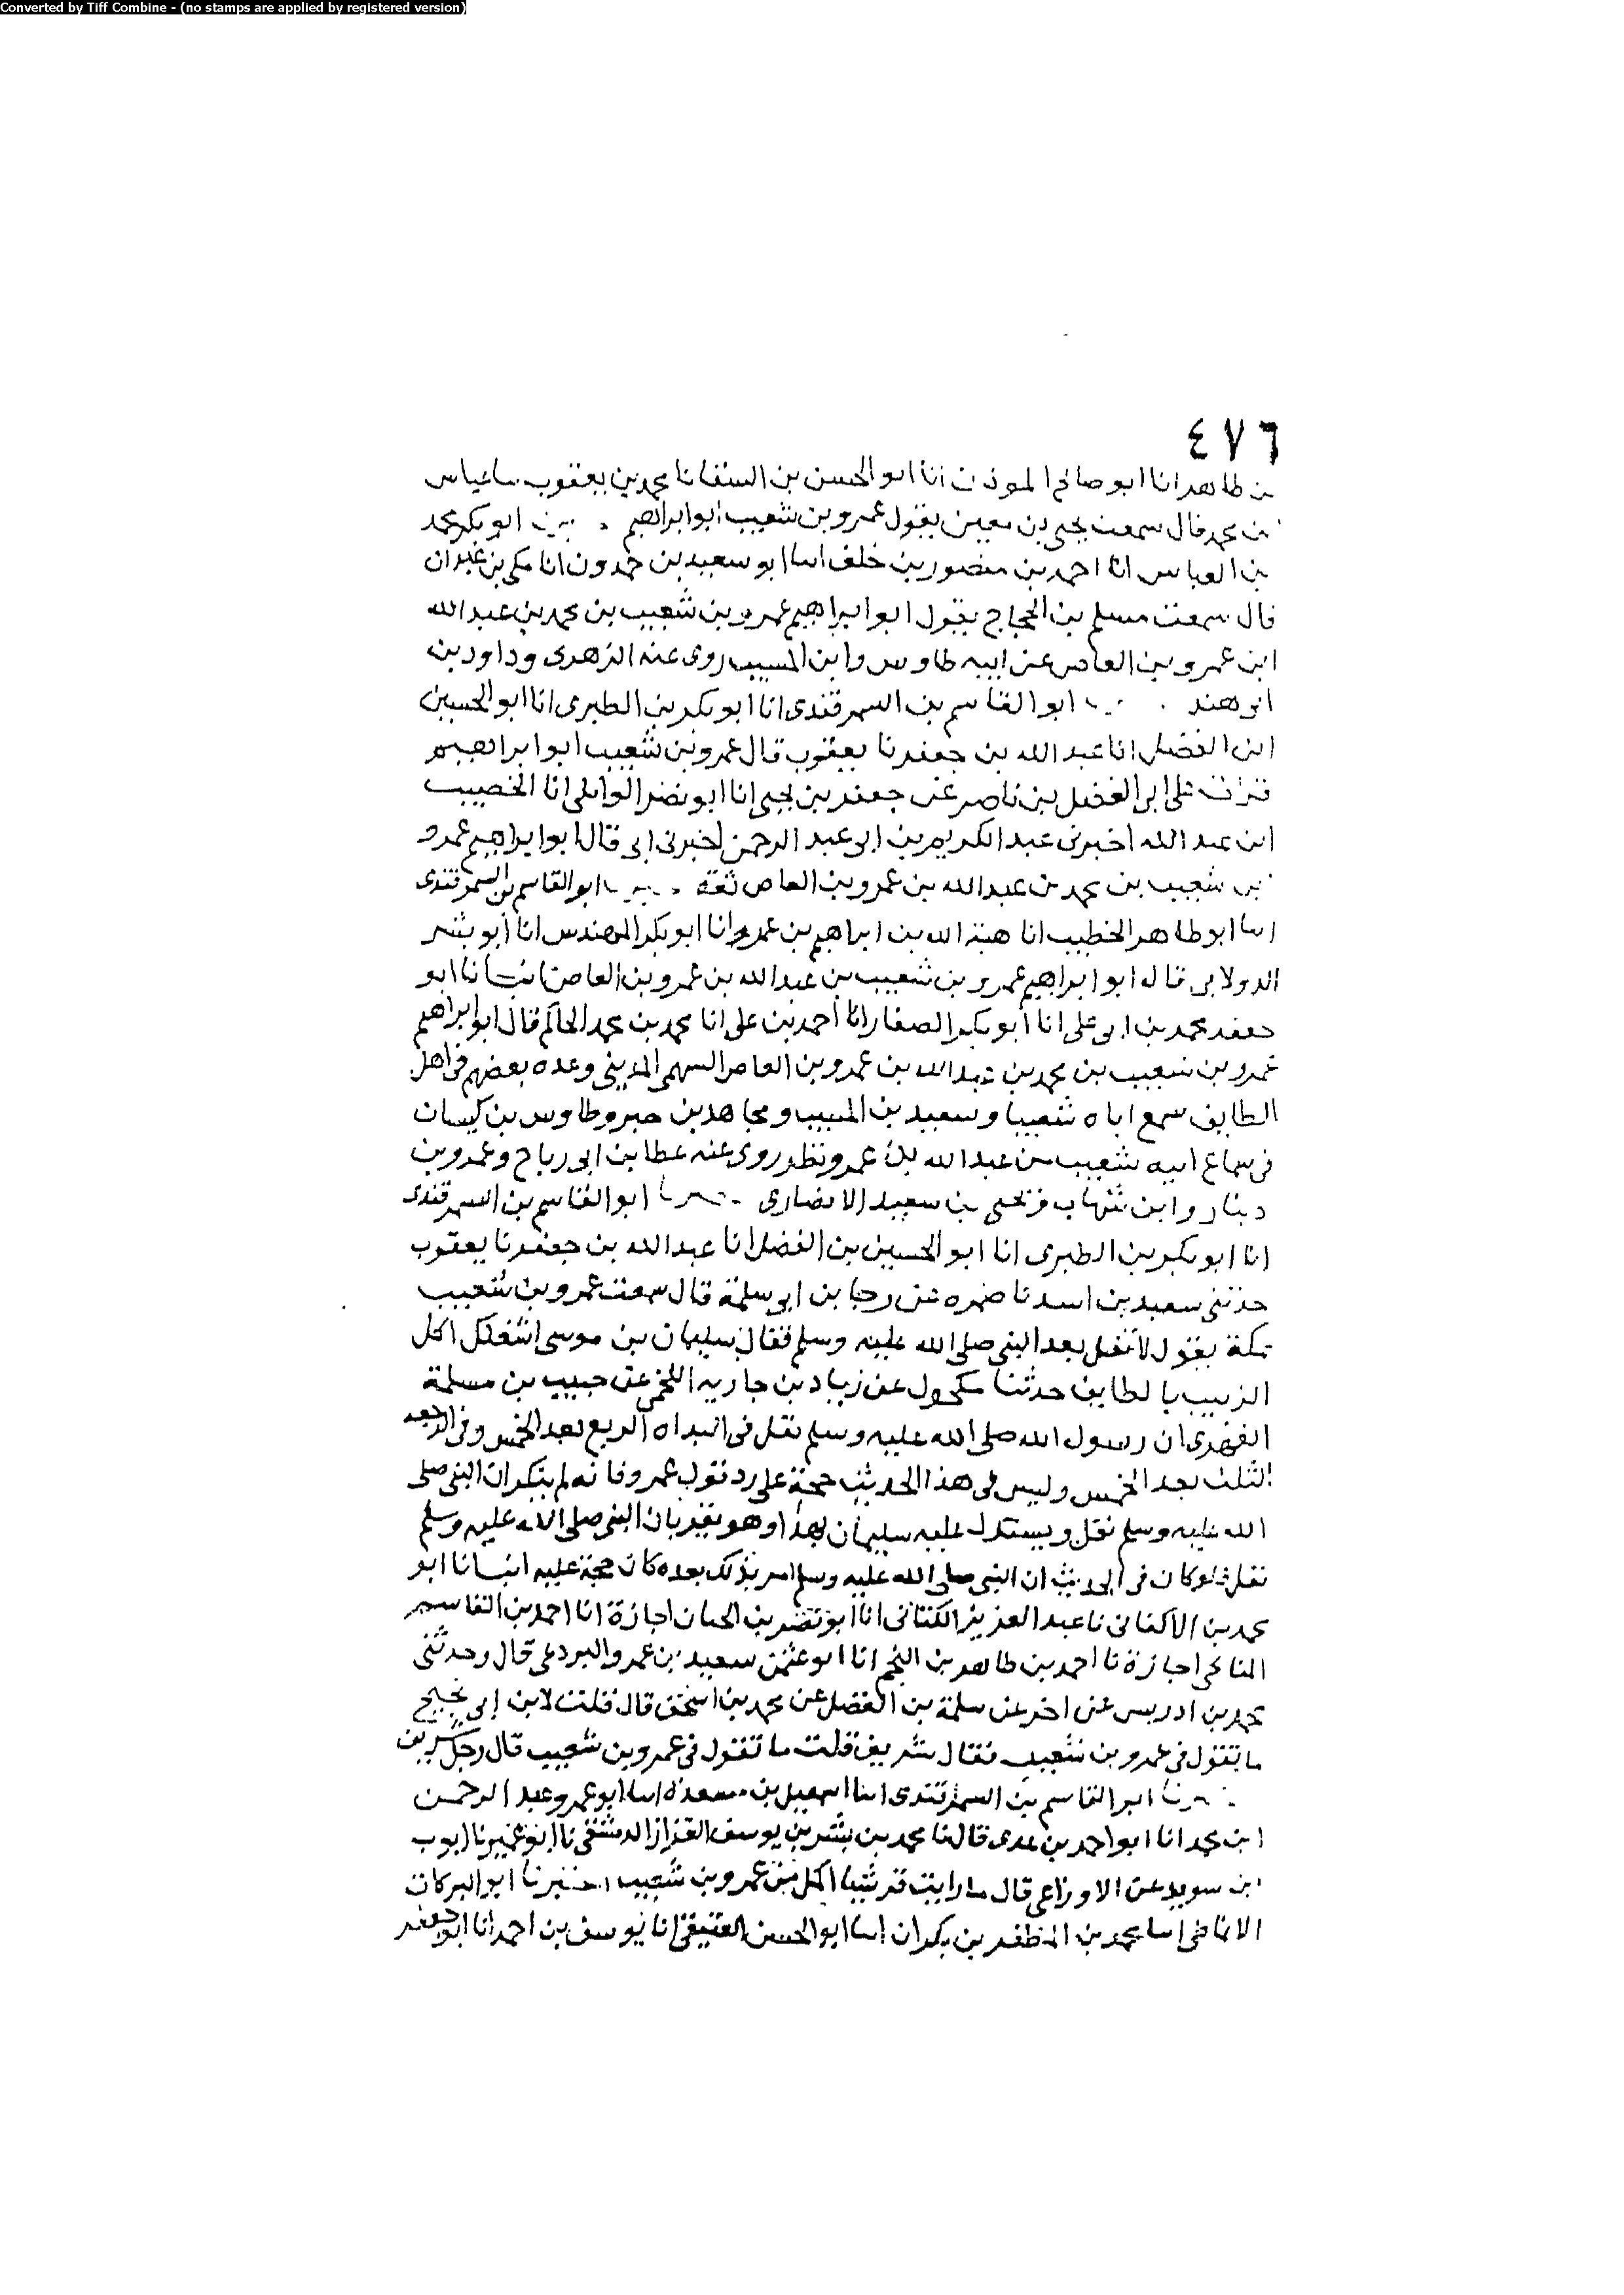 Converted by Tiff Combine - (no stamps are applied by registered version)
٤٧٦
بن طاهر انا ابو صالح الموذن انا ابو الحسن بن السقا نا محمد بن يعقوب نا عباس
بن محمد قال سمعت يحيى بن معين يقول عمرو بن شعيب ابو ابراهيم ابو بكر محمد
بن العباس انا احمد بن منصور بن خلف انا ابو سعيد بن حمدون انا مكي بن عبدان
قال سمعت مسلم بن الحجاج يقول ابو ابراهيم عمرو بن شعيب بن محمد بن عبد الله
ابن عمرو بن العاص عن ابيه طاوس وابن المسيب روى عنه الزهرى وداود بن
ابي هند ابو القاسم بن السمرقندى انا ابو بكر بن الطبرى انا ابو الحسين
ابن الفضل انا عبد الله بن جعفر نا يعقوب قال عمرو بن شعيب ابو ابراهيم
قرات على ابي الفضل بن ناصر عن جعفر بن يحيى انا ابو نصر الوايلى انا الخصيب
ابن عبد الله اخبرنى عبد الكريم بن ابى عبد الرحمن اخبرنى ابى قال ابو ابراهيم عمرو
بن شعيب بن محمد بن عبد الله بن عمرو بن العاص ثقة ابو القاسم بن السمرقندى
انا ابو طاهر الخطيب انا هبة الله بن ابراهيم بن عمر وانا ابو بكر المهندس انا ابو بشر
الدولابى قال ابو ابراهيم عمرو بن شعيب بن عبد الله بن عمرو بن العاص انبانا ابو
جعفر محمد بن ابى على انا ابو بكر الصفار انا احمد بن على انا محمد بن محمد الحاكم قال ابو ابراهيم
عمرو بن شعيب بن محمد بن عبد الله بن عمرو بن العاص السهمى المدينى وعده بعضهم فى اهل
الطايف سمع اباه شعيبا وسعيد بن المسيب ومجاهد بن جبر وطاوس بن كيسان
فى سماع ابيه شعيب من عبد الله بن عمرو نظر روى عنه عطا بن ابى رباح وعمرو بن
دينار وابن شهاب ويحيى بن سعيد الانصارى ابو القاسم بن السمرقندى
انا ابو بكر بن الطبرى انا ابو الحسين بن الفضل انا عبد الله بن جعفر نا يعقوب
حدثنى سعيد بن اسد نا ضمره عن رجا بن ابى سلمة قال سمعت عمرو بن شعيب
بمكة يقول لا نفل بعد النبى صلى الله عليه وسلم فقال سليمان بن موسى اشغلك اكل
الزبيب بالطايف حدثنا مكحول عن زياد بن جارية اللخمى عن حبيب بن مسلمة
الفهرى ان رسول الله صلى الله عليه وسلم نفل فى البداه الربع بعد الخمس وفى الرجعه
الثلث بعد الخمس وليس فى هذا الحديث حجة على رد قول عمرو فانه لم ينكر ان النبى صلى
الله عليه وسلم نفل ويستدل عليه سليمان بهذا وهو يقر بان النبى صلى الله عليه وسلم
نفل فلو كان فى الحديث ان النبى صلى الله عليه وسلم امر بذلك بعده كان حجة عليه انبانا ابو
محمد بن الاكفانى نا عبد العزيز الكتانى انا ابو نصر بن الجبان اجازة انا احمد بن القاسم
اجازة نا احمد بن طاهر بن النجم انا ابو عثمن سعيد بن عمرو البردعى قال وحدثنى
محمد بن ادريس عن اخر عن سلمة بن الفضل عن محمد بن اسحق قال قلت لابن ابى نجيح
ما تقول فى عمرو بن شعيب فقال شريف قلت ما تقول فى عمرو بن شعيب قال رجل شريف
ابو القاسم بن السمرقندى انا اسمعيل بن مسعدة انا ابو عمرو عبد الرحمن
ابن محمد انا ابو احمد بن عدى قال نا محمد بن بشر بن يوسف القزاز الدمشقى نا ابو عمير نا ايوب
ابن سويد عن الاوزاعى قال ما رايت قرشيا اكمل من عمرو بن شعيب اخبرنا ابو البركات
الانماطى انا محمد بن المظفر بن بكران انا ابو الحسن العتيقى انا يوسف بن احمد انا ابو جعفر